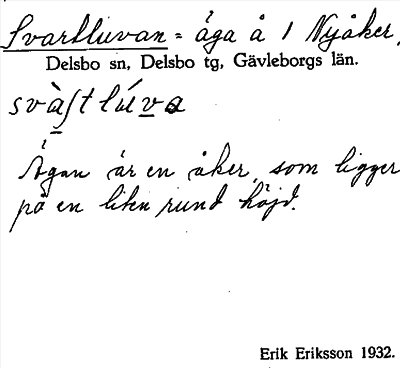 Svartluvan = äga å 1 Nyåker,
Delsbo sn, Delsbo tg, Gävleborgs län.
svàʃtlúva
Ägan är en åker, som ligger
på en liten rund höjd.
Erik Eriksson 1932.